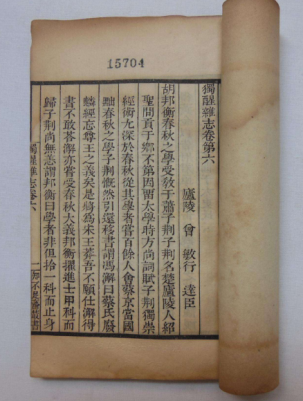 15704
獨醒雜志卷第六
廬陵 曾 敏行 達臣
胡邦衡春秋之學受敎于蕭子荆子荆名楚廬陵人紹
聖間貢于鄉不第因留太學時方尚詞賦子荆獨崇
經術尤深於春秋從其學者嘗百餘人會蔡京當國
黜春秋之學子荆慨然引還移書謂馮澥曰蔡氏廢
麟經忘尊王之義矣是將爲宋王莽吾不願仕澥得
書不敢荅澥亦嘗受春秋大義邦衡擢進士甲科而
歸子荆尚無恙謂邦衡曰學者非但拾一科而止身
獨醒雜志卷六
一
知不足齋叢書